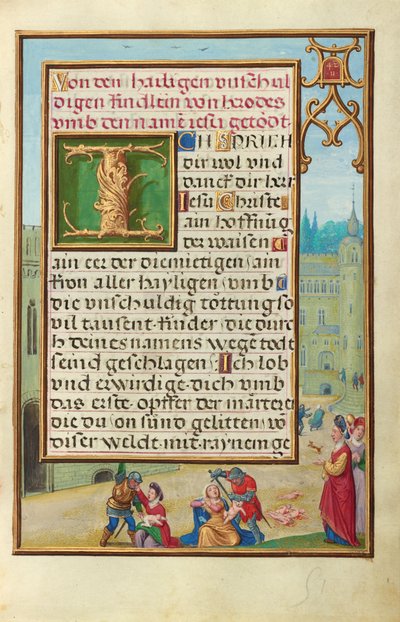 Von den hailigen vnschul
digen kindlein von herodes
vmb den name iesu getödt
ICH SPRICH
dir wol vnd
danck dir herr
Jesu Christe
ain hoffnūg
der waisen
ain eer der diemietigen / ain
kron aller hayligen / vmb
die vnschuldig tōttung so
vil tausent kinder / die durc
h deines namens wege todt
seind geschlagen / Ich lob
vnd erwirdige dich vmb
das erste opffer der märterer
die du on sünd gelitten / vō
diser weldt mit raynem ge